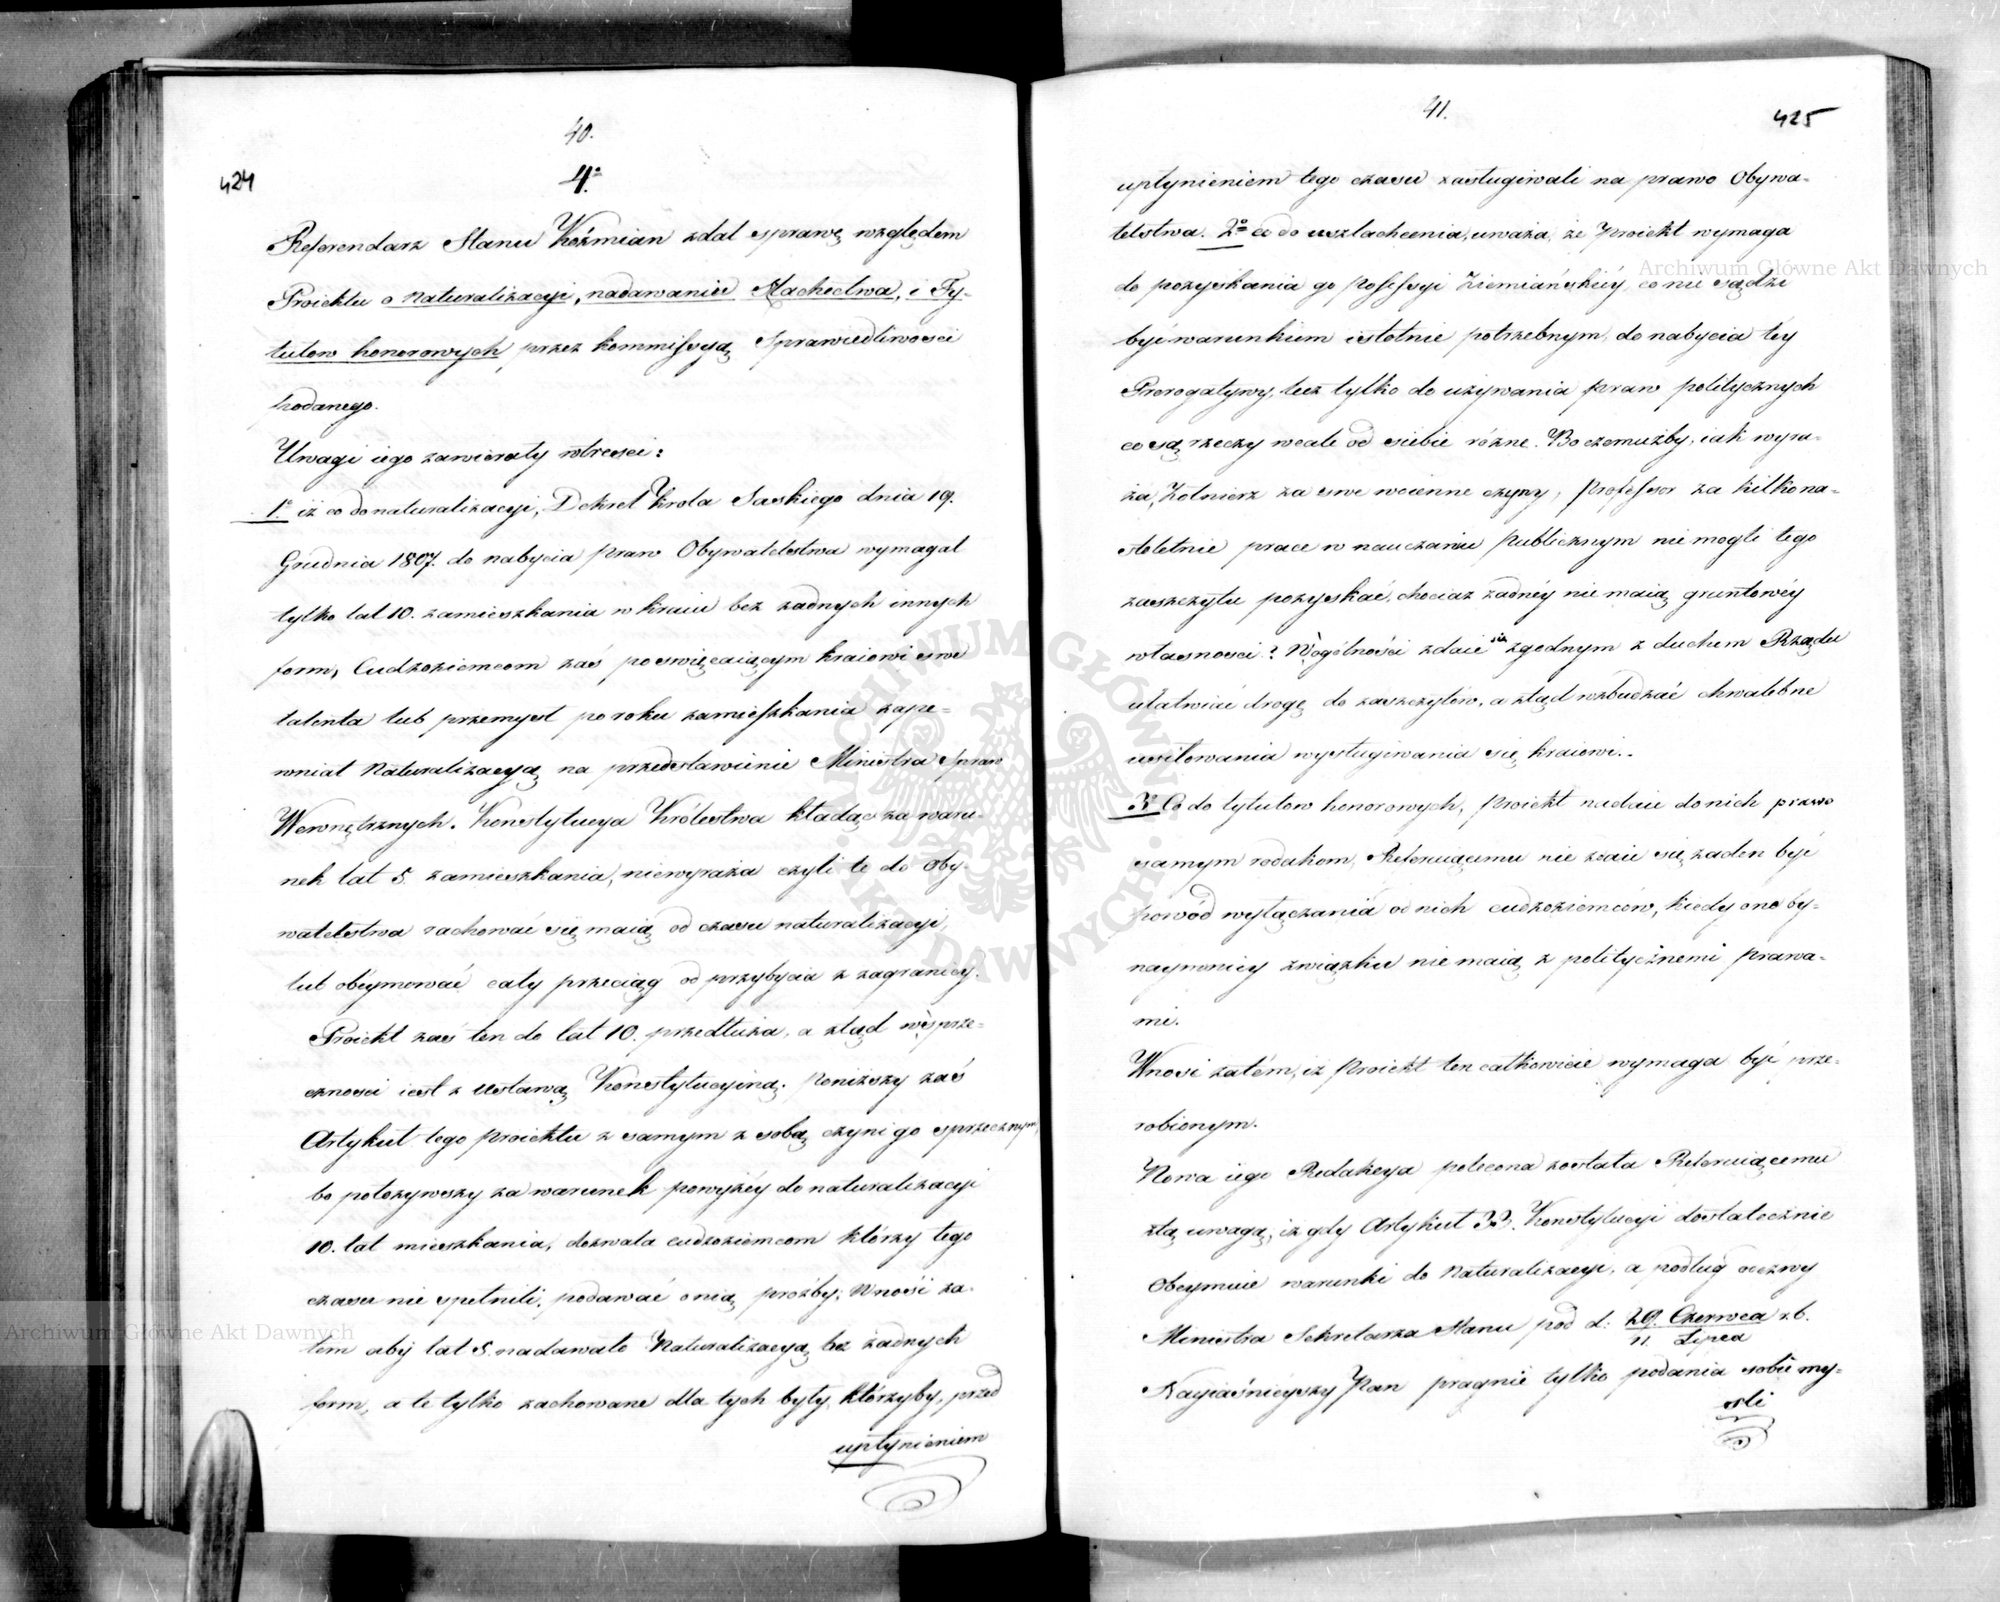 40.
424
4.º
Referendarz Stanu Koźmian zdał sprawę względem
Proiektu o Naturalizacyi, nadawaniu Szlachectwa, i Ty-
tułow honorowych przez kommissyą Sprawiedliwości
podanego.
Uwagi iego zawierały wtresci:
1.º iż co do naturalizacyi, Dekret Krola Saskiego dnia 19.
Grudnia 1807. do nabycia praw Obywatelstwa wymagał
tylko lat 10. zamieszkania w kraiu bez żadnych innych
form, Cudzoziemcom zaś poswięcaiącym kraiowi swe
talenta lub przemysł po roku zamieszkania zape-
wniał Naturalizacyą na przedstawienie Ministra Spraw
Wewnętrznych. Konstytucya Królestwa kładąc za waru-
nek lat 5. zamieszkania, niewyraża czyli te do Oby-
watelstwa rachować się maią od czasu naturalizacyi,
lub obeymować cały przeciąg od przybycia z zagranicy.
Proiekt zaś ten do lat 10. przedłuża, a ztąd w sprze-
czności iest z Ustawą Konstytucyiną. Poniższy zaś
Artykuł tego proiektu z samym z sobą czyni go sprzecznym,
bo położywszy za warunek powyżéy do naturalizacyi
10. lat mieszkania, dozwala cudzoziemcom którzy tego
czasu nie spełnili, podawać o nią prozby; Wnosi za-
tem aby lat 5. nadawało Naturalizacyą bez żadnych
form, a te tylko zachowane dla tych były, którzyby, przed
upłynieniem
41.
425
upłynieniem tego czasu zasługiwali na prawo Obywa-
telstwa. 2.º co do uszlachcenia, uważa, że Proiekt wymaga
do pozyskania go possessyi Ziemiańskiéy, co nie sądzi
być warunkiem istotnie potrzebnym, do nabycia téy
Prerogatywy, lecz tylko do używania praw politycznych
co są rzeczy wcale od siebie różne. Bo czemużby, iak wyra-
ża, Żołnierz za swe woienne czyny, Professor za kilkona-
stoletnie prace w nauczaniu publicznym nie mogli tego
zaszczytu pozyskać, chociaż żadnéy nie maią gruntowéy
własności? Wogólności zdaie się zgodnym z duchem Rządu
ułatwiać drogę do zaszczytów, a ztąd wzbudzać chwalebne
usiłowania wysługiwania się kraiowi.
3.º Co do tytułow honorowych, Proiekt nadaie do nich prawo
samym rodakom, Referuiącemu nie zdaie się żaden być
powód wyłączania od nich cudzoziemców, kiedy one by-
naymniéy związku nie maią z politycznemi prawa-
mi.
Wnosi zatém, iż Proiekt ten całkowicie wymaga być prze-
robionym.
Nowa iego Redakcya polecona została Referuiącemu
ztą uwagą, iż gdy Artykuł 33. Konstytucyi dostatecznie
Obeymuie warunki do Naturalizacyi, a podług odezwy
Ministra Sekretarza Stanu pod d: 29. Czerwca r.b.
11. Lipca
Nayiaśnieyszy Pan pragnie tylko podania sobie my-
śli
Archiwum Główne Akt Dawnych
Archiwum Główne Akt Dawnych
ARCHIWUM GŁÓWNE AKT DAWNYCH